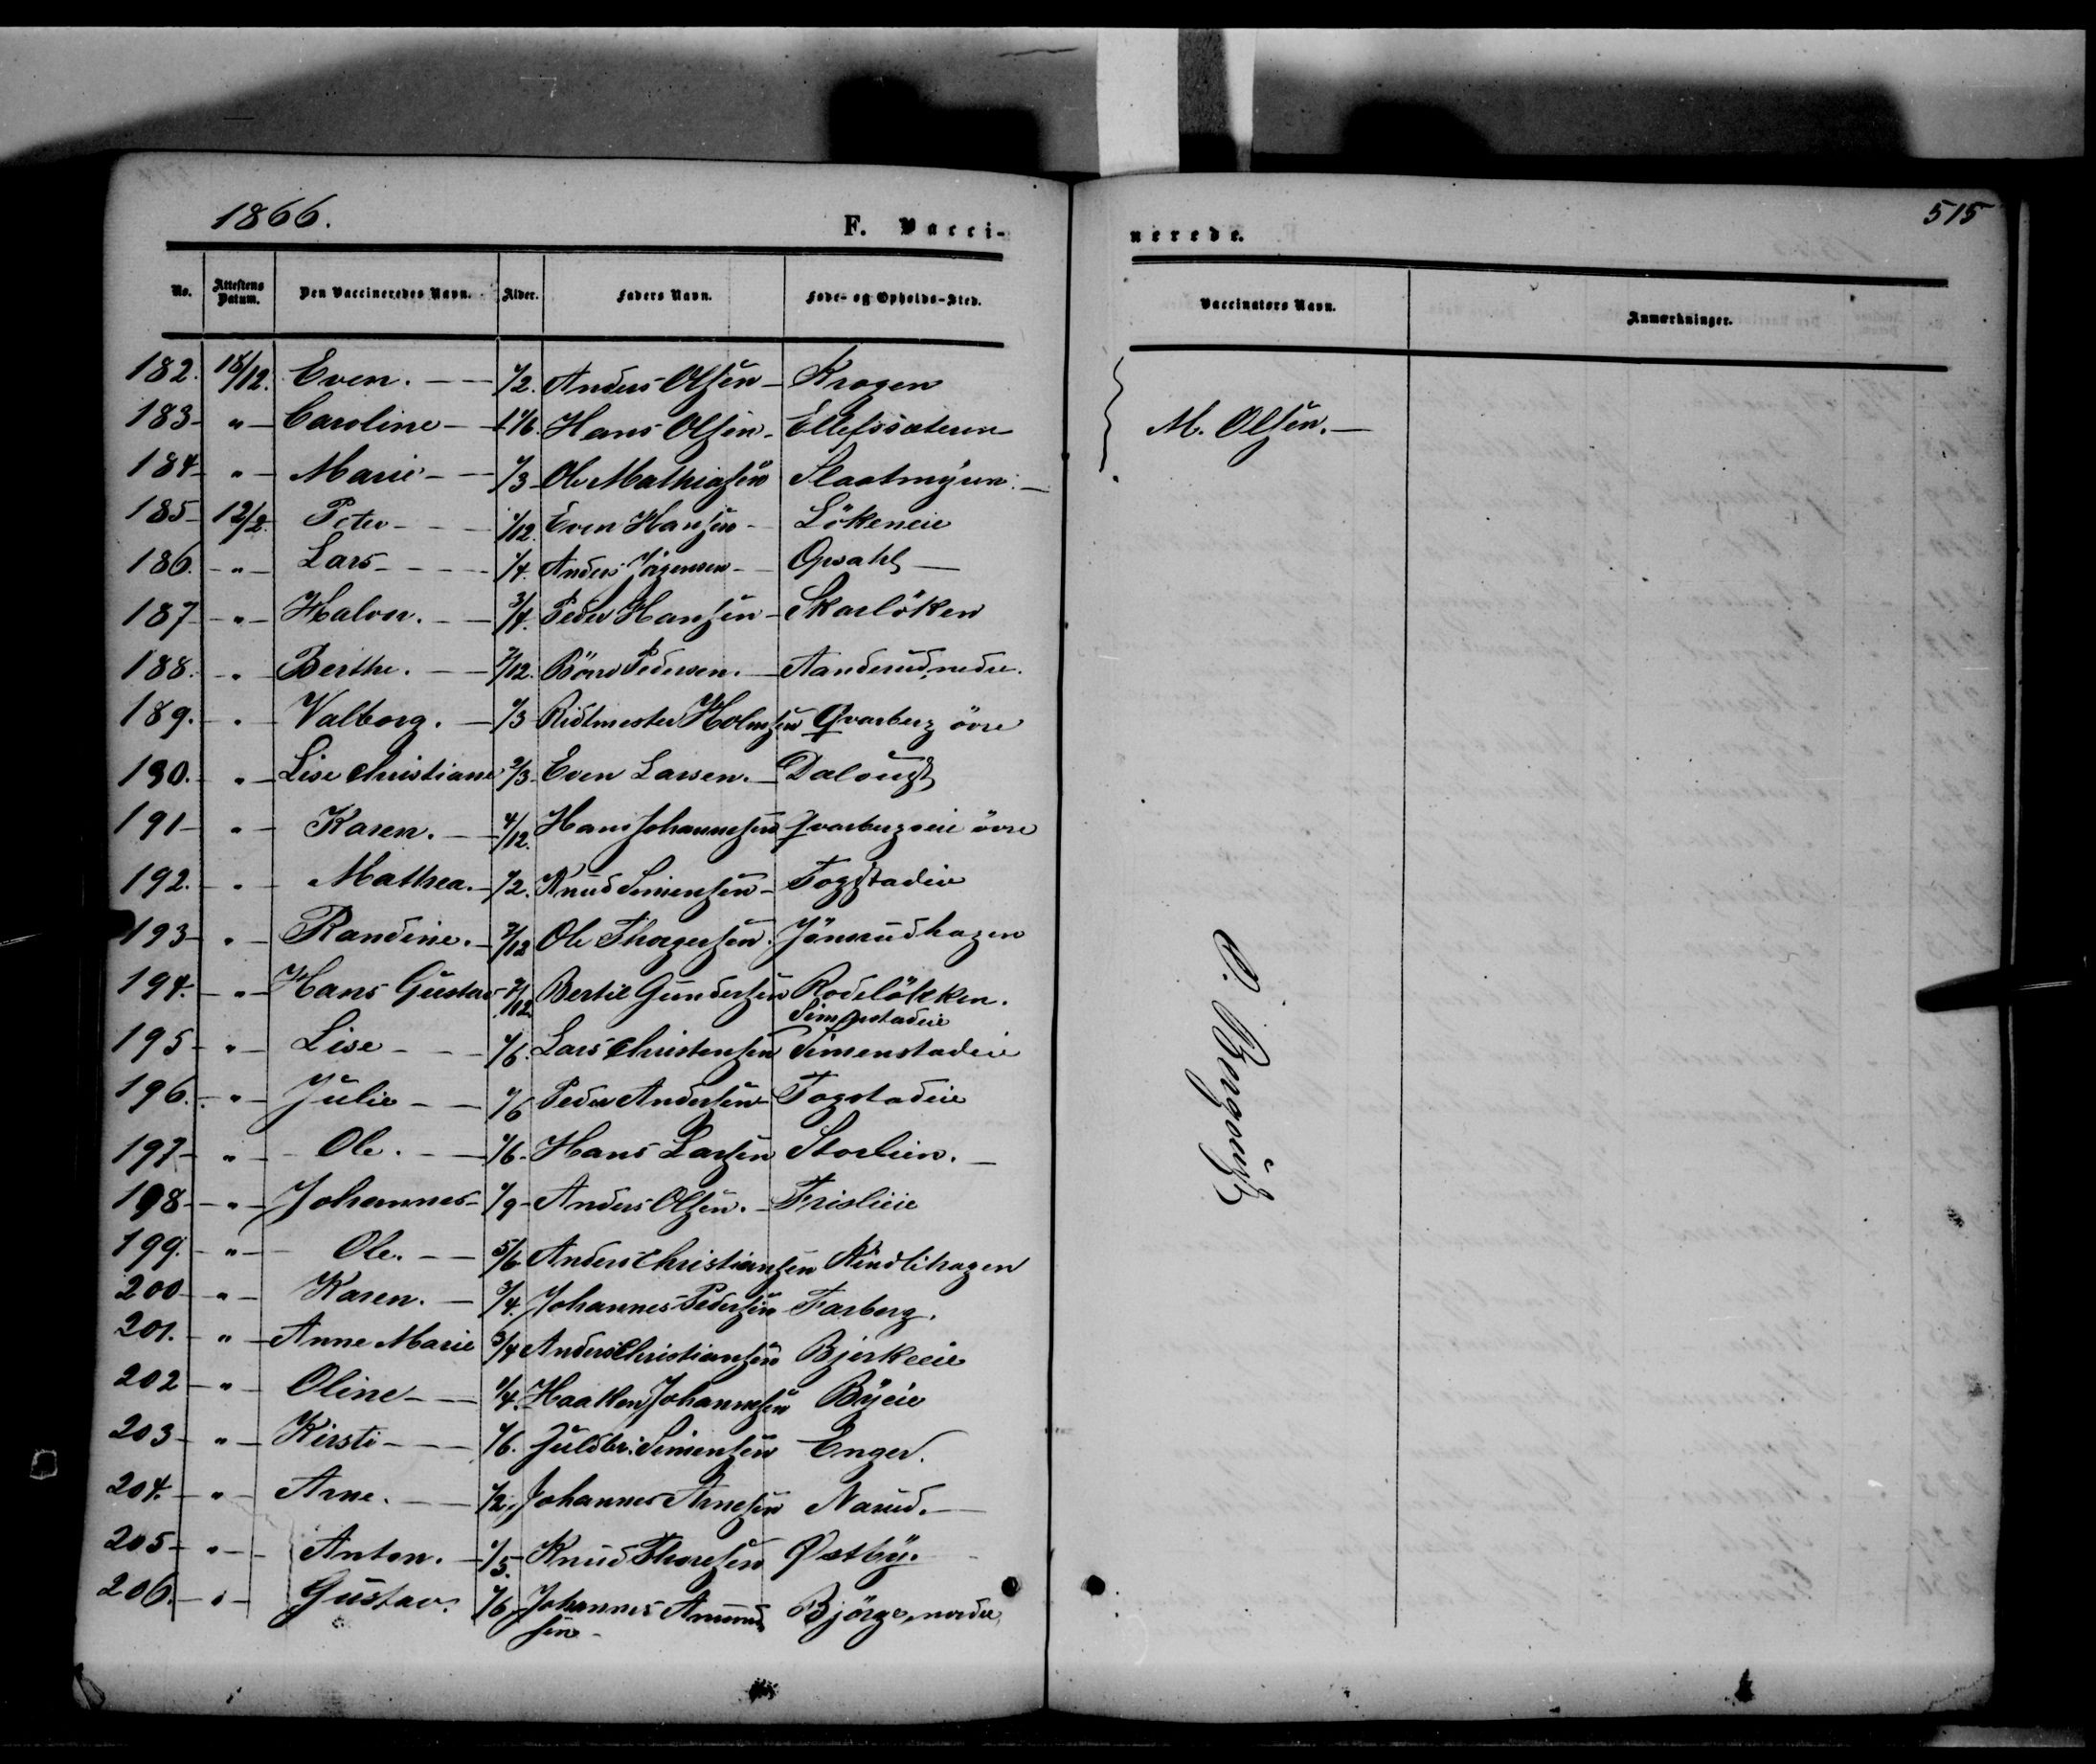 1866.
F. Vacci-
nerede.
515
No. Attestens Datum. Den Vaccineredes Navn. Alder. Faders Navn. Føde- og Opholds-Sted. Vaccinators Navn. Anmærkninger.
182. 18/12. Even. 1/2. Anders Olsen Krogen
183 " Caroline 1 1/6. Hans Olsen Ellefssæteren M. Olsen.
184 " Marie 1/3 Ole Mathiasen Slaatmyren
185 12/2. Peter 1/12. Even Hansen Lökeneie
186. " Lars 1/4. Anders Jörgensen Opsahl
187 " Halvor. 3/4. Peder Hansen Skarlöken
188. " Berthe. 7/12. Börre Pedersen. Aanderud nedre.
189. " Valborg. 1/3 Ridtmester Holmsen Qvarberg övre
190. " Lise Christiane 2/3 Even Larsen. Dalougt
191 " Karen. 4/12. Hans Johannesen Qvarbergseie övre
192. " Mathea. 1/2. Knud Simensen Togstadeie
193 " Randine. 7/12 Ole Thorgersen. Jönsrudhagen
194. " Hans Gustav 7/12 Bertil Gundersen Rodelökken.
Simenstadeie
195 " Lise 1/6. Lars Christensen Simenstadeie
196. " Julie 1/6 Peder Andersen Togstadeie
197 " Ole. 1/6. Hans Larsen Storlien.
198 " Johannes 1/9 Anders Olsen. Frislieie
199. " Ole. 5/6 Anders Christiansen Kindlihagen
200 " Karen. 3/4. Johannes Pedersen Farberg.
201. " Anne Marie 3/4 Anders Christiansen Bjerkeeie
202 " Oline 1/4. Haaken Johannesen Byeie
203 " Kirsti 1/6. Guldbr. Simensen Enger.
204. " Arne. 1/2. Johannes Arnesen Narud.
205 " Anton. 1/5. Knud Thoresen Østby.
206. " Gustav. 1/6 Johannes Amund
sen Björge nordre